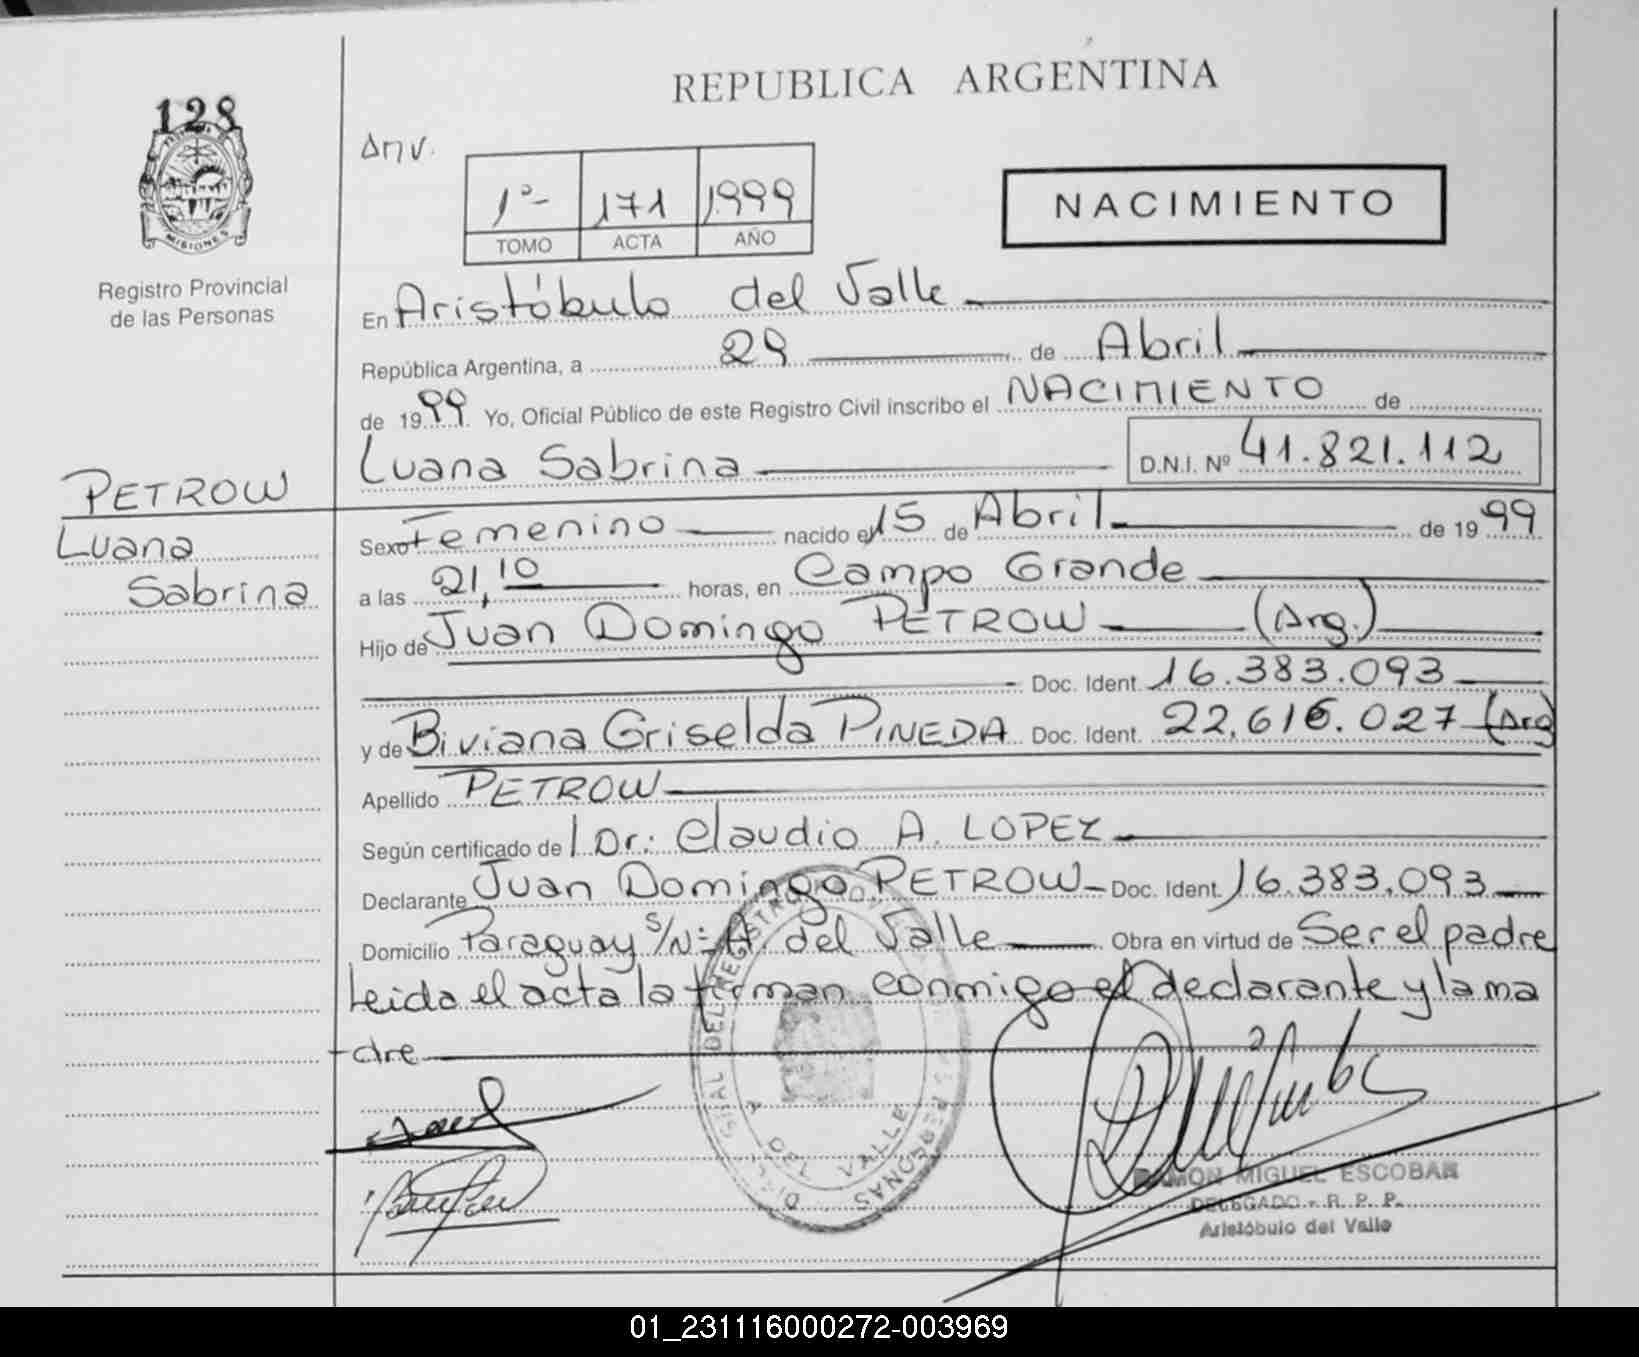 REPUBLICA ARGENTINA
128
MISIONES
Registro Provincial
de las Personas
Anv.
1º- 171 1999
TOMO ACTA AÑO
NACIMIENTO
En Aristóbulo del Valle
República Argentina, a 29 de Abril
de 1999 Yo, Oficial Público de este Registro Civil inscribo el NACIMIENTO de
Luana Sabrina D.N.I. Nº 41.821.112
PETROW
Luana
Sabrina
Sexo Femenino nacido el 15 de Abril de 1999
a las 21,10 horas, en Campo Grande
Hijo de Juan Domingo PETROW (Arg.)
Doc. Ident. 16.383.093
y de Biviana Griselda PINEDA Doc. Ident. 22.616.027 (Arg
Apellido PETROW
Según certificado de Dr: Claudio A. LOPEZ
Declarante Juan Domingo PETROW Doc. Ident. 16.383.093
Domicilio Paraguay S/Nº A. del Valle Obra en virtud de Ser el padre
Leida el acta la firman conmigo el declarante y la ma
dre
DEL REGISTRO PERSONAS
A. DEL VALLE
RAMON MIGUEL ESCOBAR
DELEGADO - R. P. P.
Aristóbulo del Valle
01_231116000272-003969